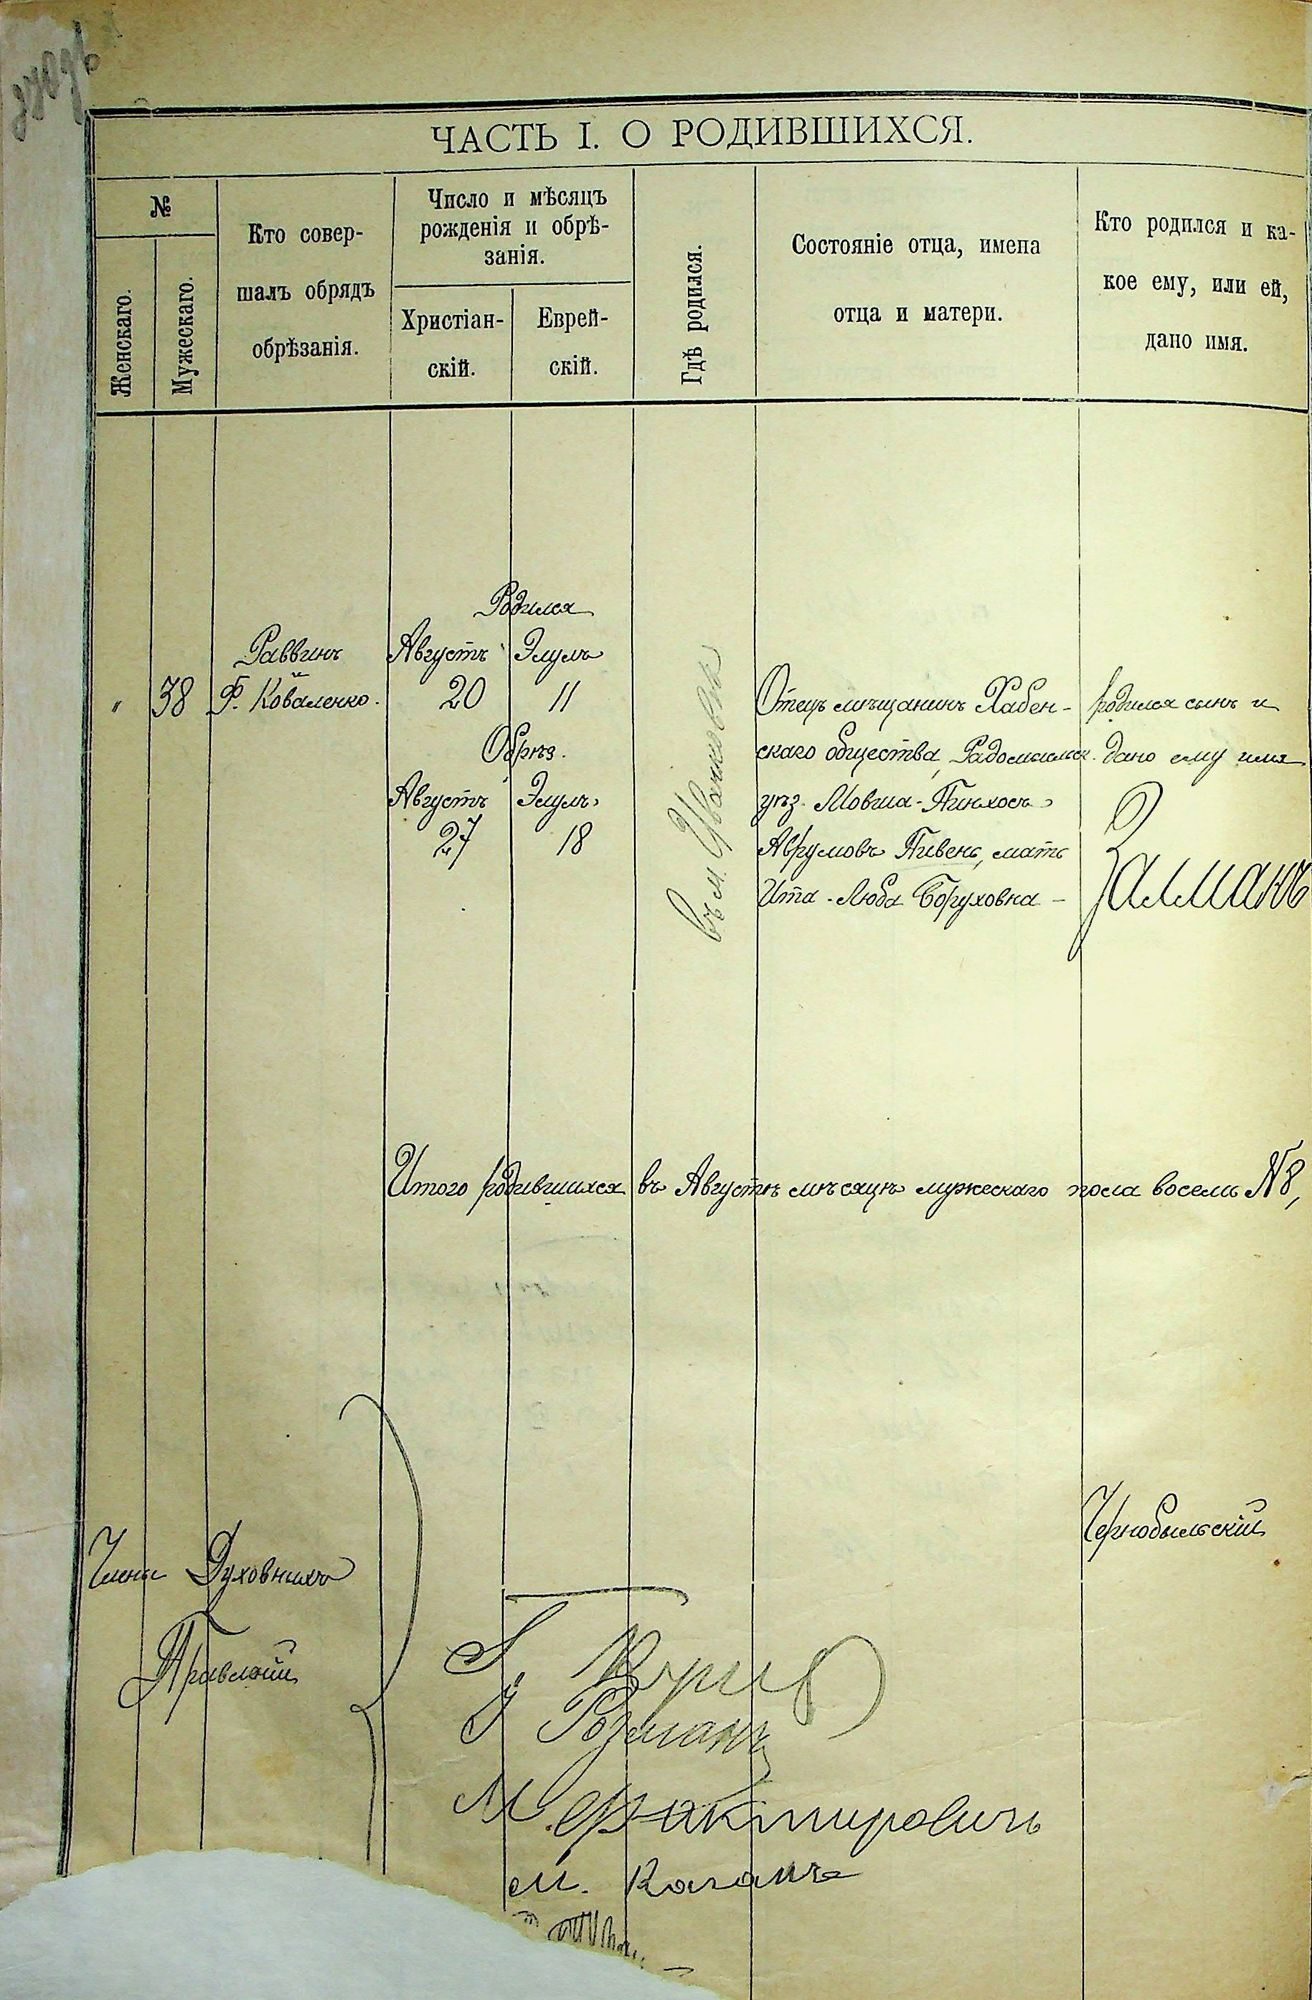 ЧАСТЬ I. О РОДИВШИХСЯ.
№
Женскаго.
Мужескаго.
Кто совер-
шалъ обрядъ
обрѣзанія.
Число и мѣсяцъ
рожденія и обрѣ-
занія.
Христіан-
скій.
Еврей-
скій.
Гдѣ родился.
Состояніе отца, имена
отца и матери.
Кто родился и ка-
кое ему, или ей,
дано имя.
"
38
Раввинъ
Ф. Коваленко.
Родился
Августъ Элулъ
20 11
Обрѣз.
Августъ Элулъ
27 18
въ м.
Отецъ мѣщанинъ Хабен-
скаго общества, Радомысльск.
уѣз. Мовша-Пинхосъ
Аврумовъ Пивень, мать
Ита-Люба Боруховна -
родился сынъ и
дано ему имя
Залманъ
Итого родившихся въ Августѣ мѣсяцѣ мужескаго пола восемь №8,
Члены Духовныхъ
Правленій
Чернобыльскій
Розманъ
М. Фактировичъ
М. Каганъ